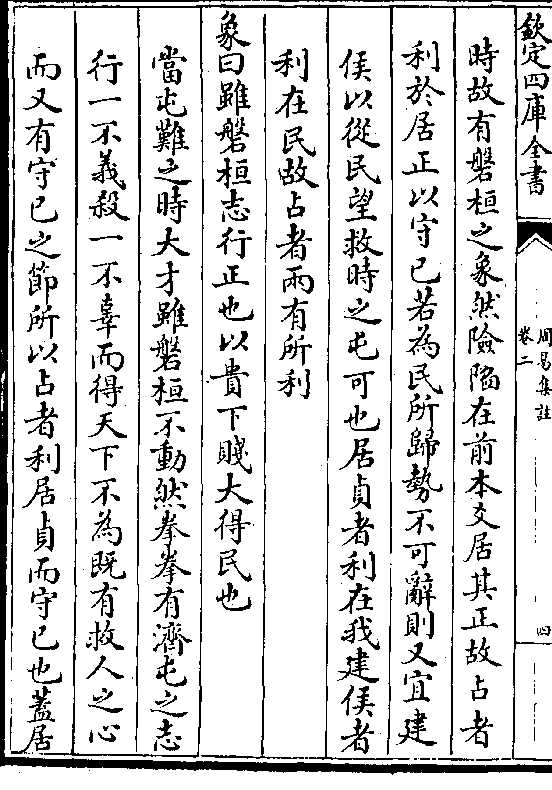 欽定四庫全書
周易集註
卷二
四
時故有磐桓之象然險陷在前本爻居其正故占者
利於居正以守己若為民所歸勢不可辭則又宜建
侯以從民望救時之屯可也居貞者利在我建侯者
利在民故占者兩有所利
象曰雖磐桓志行正也以貴下賤大得民也
當屯難之時大才雖磐桓不動然拳拳有濟屯之志
行一不義殺一不辜而得天下不為既有救人之心
而又有守己之節所以占者利居貞而守己也蓋居